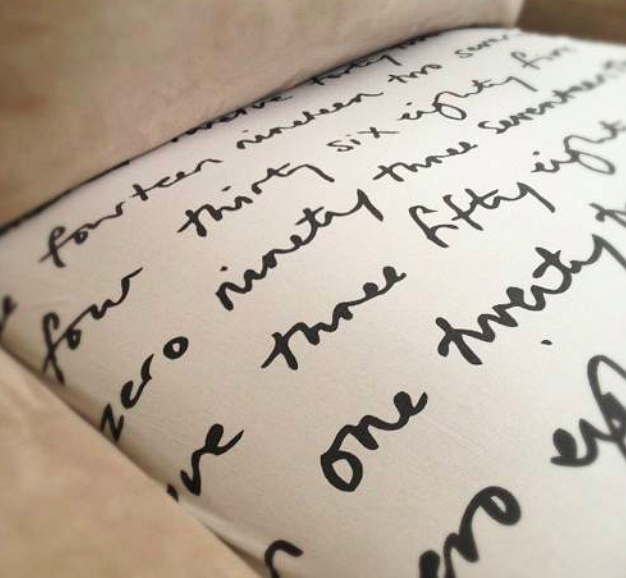 fourteen nineteen two seven
four thirty six eighty five
zero ninety three seventeen
three fifty eight
one twenty